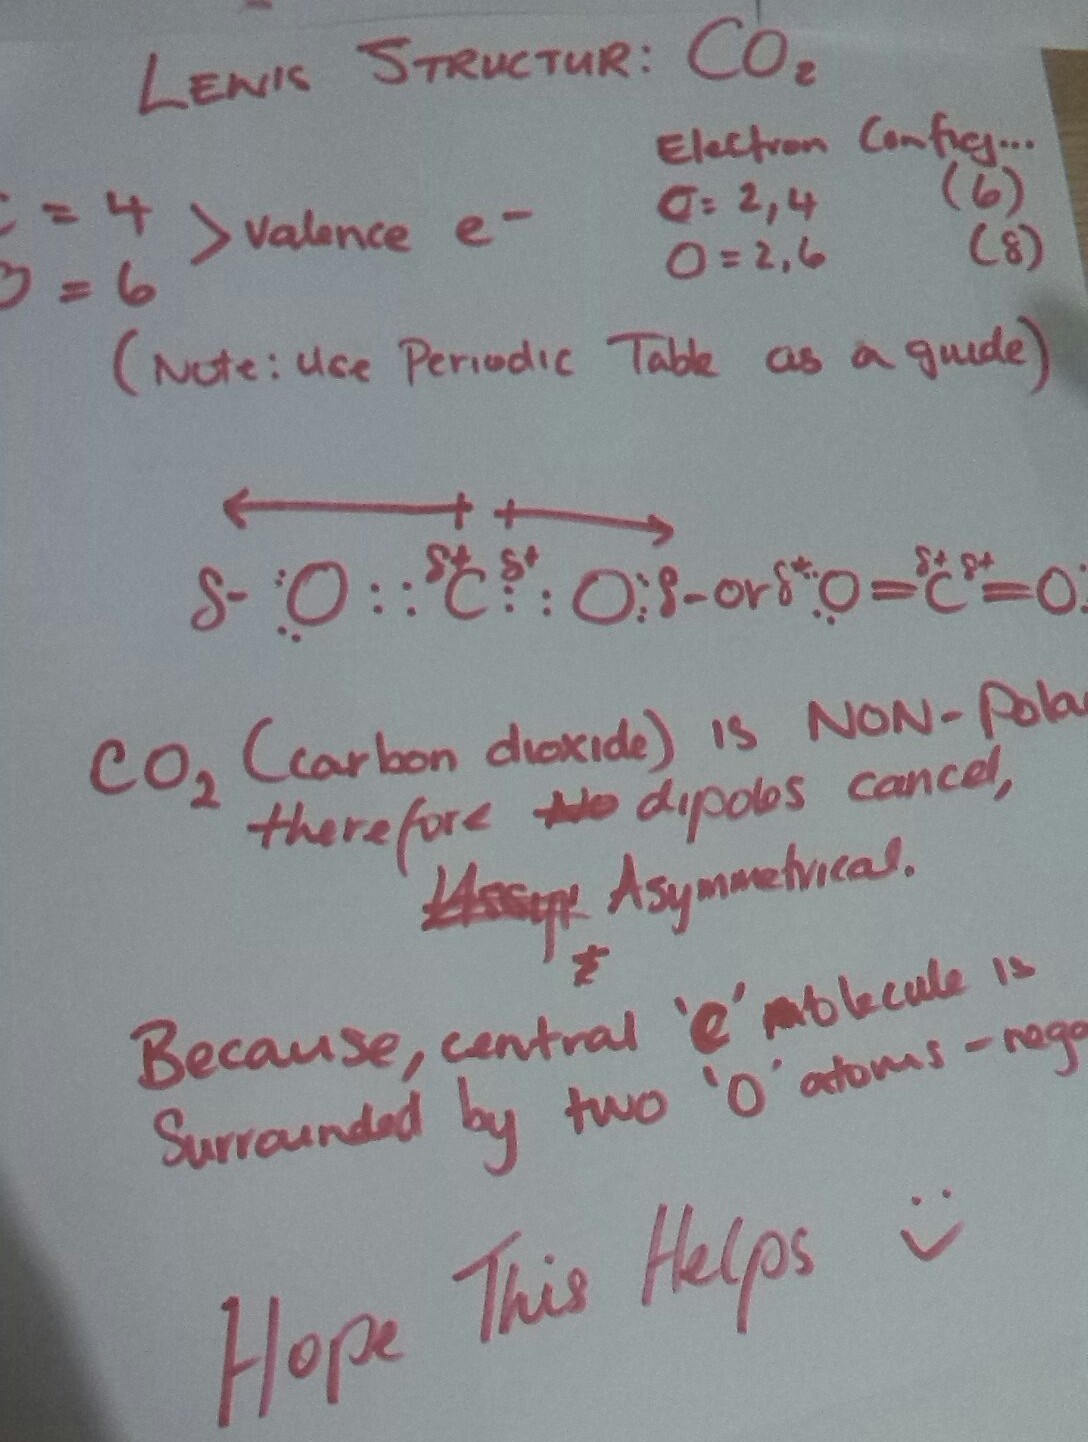 LEWIS STRUCTUR: CO₂
Electron Config...
C = 4 > valence e⁻
C = 2,4 (6)
O = 6
O = 2,6 (8)
(Note: Use Periodic Table as a guide)
δ- :O :: δ+ C δ+ :: O: δ- or δ+ :O = δ+ C δ+ = O:
CO₂ (carbon dioxide) is NON-Pola
therefore dipoles cancel,
Asymmetrical.
Because, central 'C' molecule is
Surrounded by two 'O' atoms - nega
Hope This Helps :)